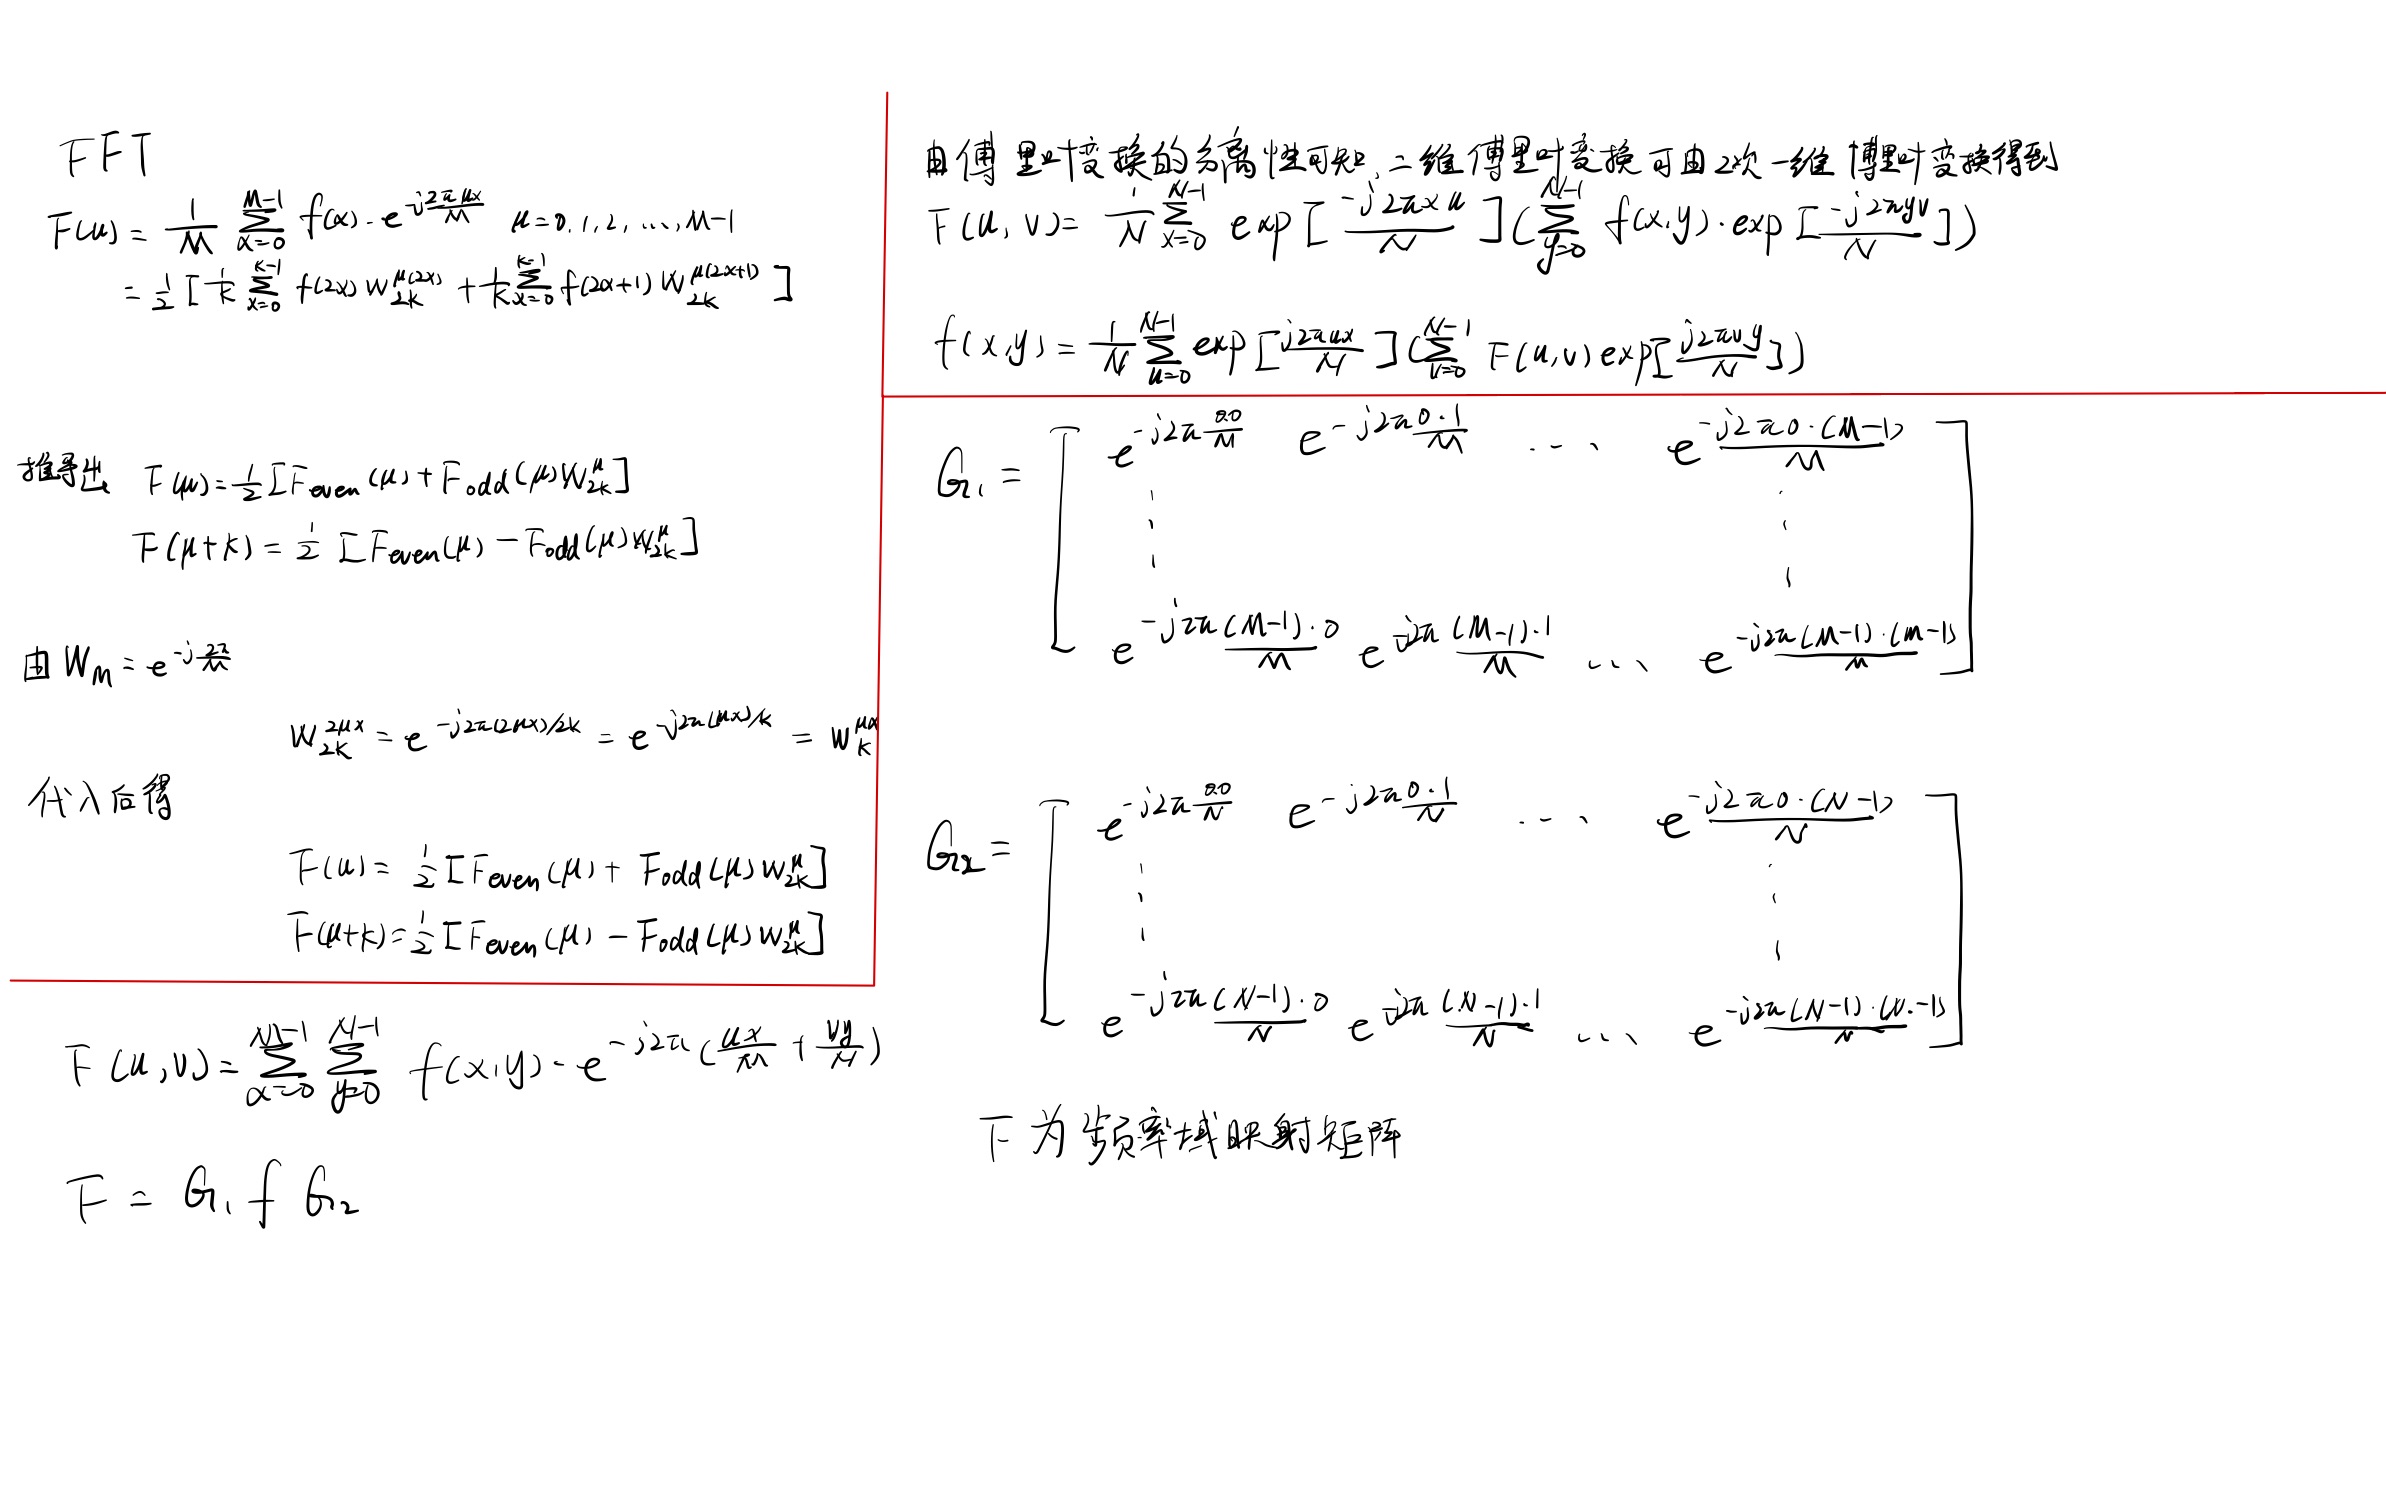 FFT
F(u) = 1/M ∑_{x=0}^{M-1} f(x) · e^{-j2πμx/M} μ = 0, 1, 2, ..., M-1
= 1/2 [1/K ∑_{x=0}^{K-1} f(2x) W_{2K}^{μ(2x)} + 1/K ∑_{x=0}^{K-1} f(2x+1) W_{2K}^{μ(2x+1)}]
推导出 F(μ) = 1/2 [F_even(μ) + F_odd(μ) W_{2K}^{μ}]
F(μ+K) = 1/2 [F_even(μ) - F_odd(μ) W_{2K}^{μ}]
由 W_M = e^{-j2π/M}
W_{2K}^{2μx} = e^{-j2π(2μx)/2K} = e^{-j2π(μx)/K} = W_K^{μx}
代入后得
F(u) = 1/2 [F_even(μ) + F_odd(μ) W_{2K}^{μ}]
F(μ+K) = 1/2 [F_even(μ) - F_odd(μ) W_{2K}^{μ}]
由傅里叶变换的分离性可知, 二维傅里叶变换可由2次一维傅里叶变换得到
F(u, v) = 1/N ∑_{x=0}^{N-1} exp[-j2πxu/N] (∑_{y=0}^{N-1} f(x,y) · exp[-j2πyv/N])
f(x,y) = 1/N ∑_{u=0}^{N-1} exp[j2πux/N] (∑_{v=0}^{N-1} F(u,v) exp[j2πvy/N])
F(u,v) = ∑_{x=0}^{M-1} ∑_{y=0}^{N-1} f(x,y) · e^{-j2π(ux/M + vy/N)}
F = G₁ f G₂
G₁ = [ e^{-j2π 0·0/M} e^{-j2π 0·1/M} ... e^{-j2π 0·(M-1)/M}
⋮ ⋮
e^{-j2π (M-1)·0/M} e^{-j2π (M-1)·1/M} ... e^{-j2π (M-1)·(M-1)/M} ]
G₂ = [ e^{-j2π 0·0/N} e^{-j2π 0·1/N} ... e^{-j2π 0·(N-1)/N}
⋮ ⋮
e^{-j2π (N-1)·0/N} e^{-j2π (N-1)·1/N} ... e^{-j2π (N-1)·(N-1)/N} ]
F 为频率域映射矩阵